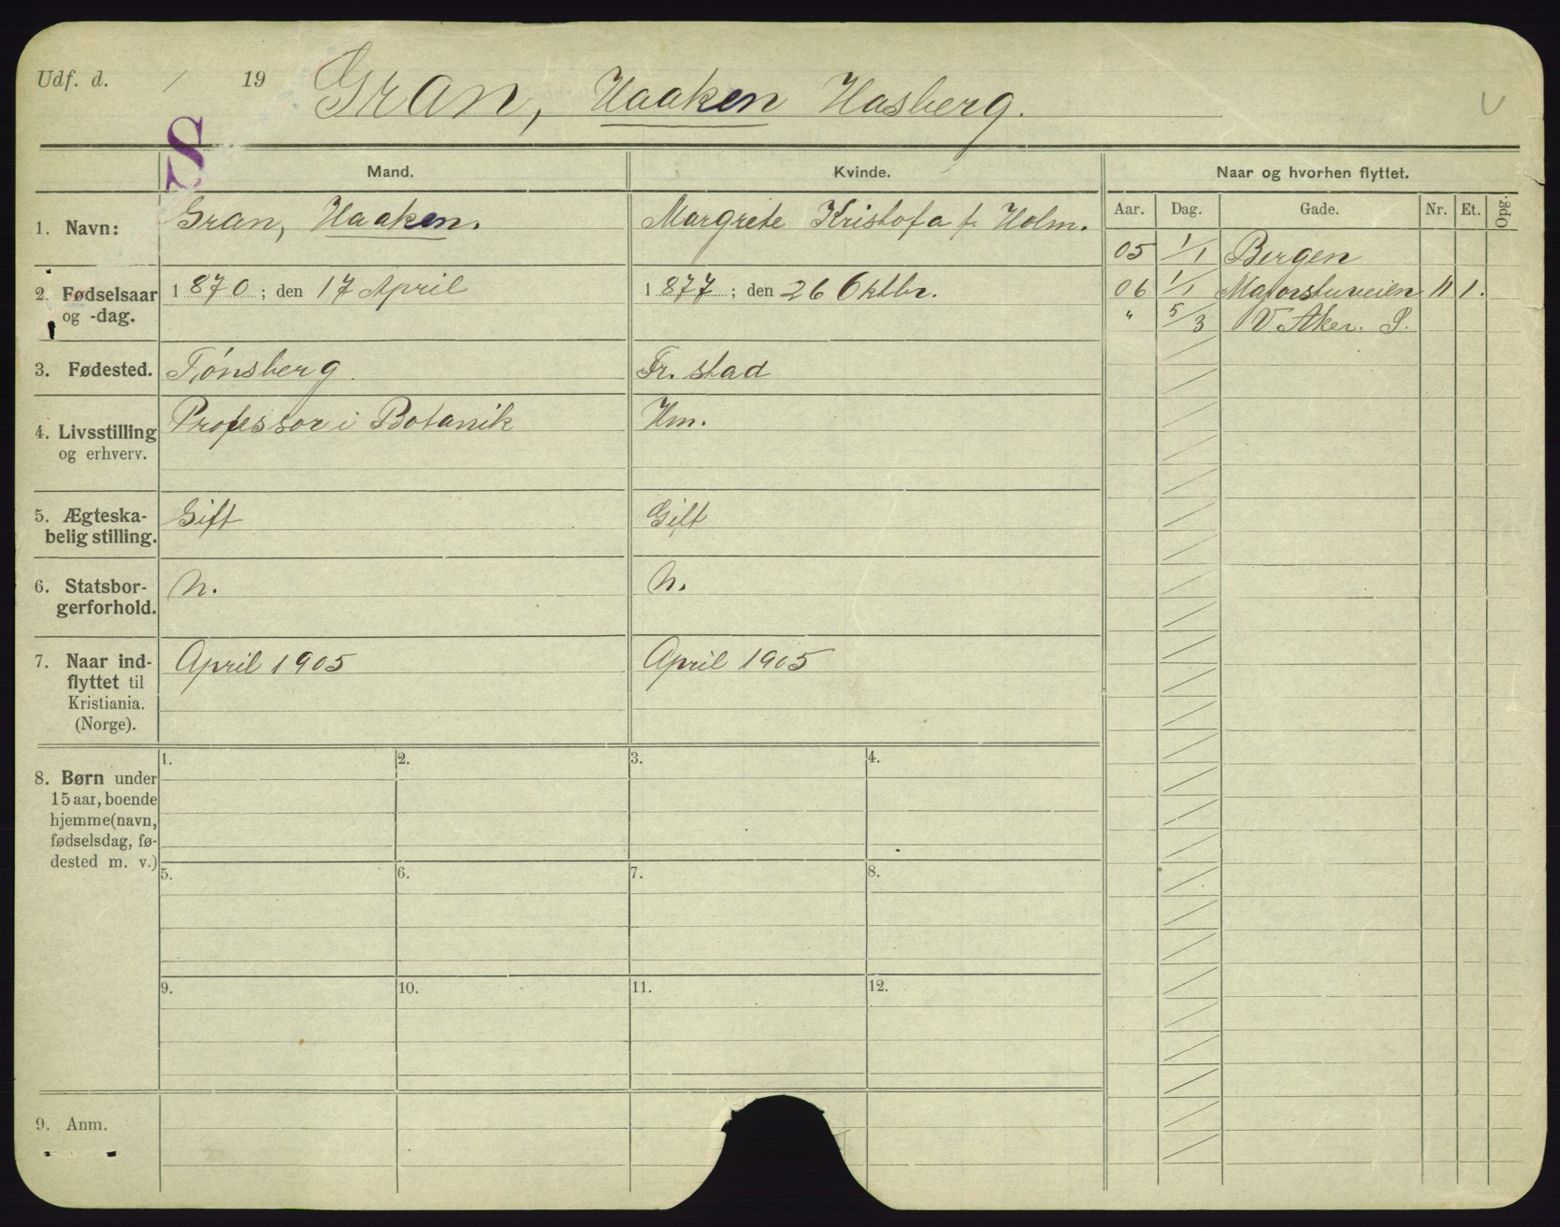 Udf. d. / 19 Gran, Haaken Hasberg.
S
Mand. Kvinde. Naar og hvorhen flyttet.
Aar. Dag. Gade. Nr. Et. Opg.
1. Navn: Gran, Haaken. Margrete Kristofa f. Holm.
05 1/1 Bergen
2. Fødselsaar og -dag. 1870; den 17 April 1877; den 26 Oktbr.
06 1/1 Majorstuveien 11 1.
" 5/3 V Aker. P.
3. Fødested. Tønsberg Fr. stad
4. Livsstilling og erhverv. Professor i Botanik Hm.
5. Ægteska-
belig stilling. Gift Gift
6. Statsbor-
gerforhold. N. N.
7. Naar ind-
flyttet til
Kristiania.
(Norge). April 1905 April 1905
8. Børn under
15 aar, boende
hjemme (navn,
fødselsdag, fø-
dested m. v.)
1. 2. 3. 4.
5. 6. 7. 8.
9. 10. 11. 12.
9. Anm.